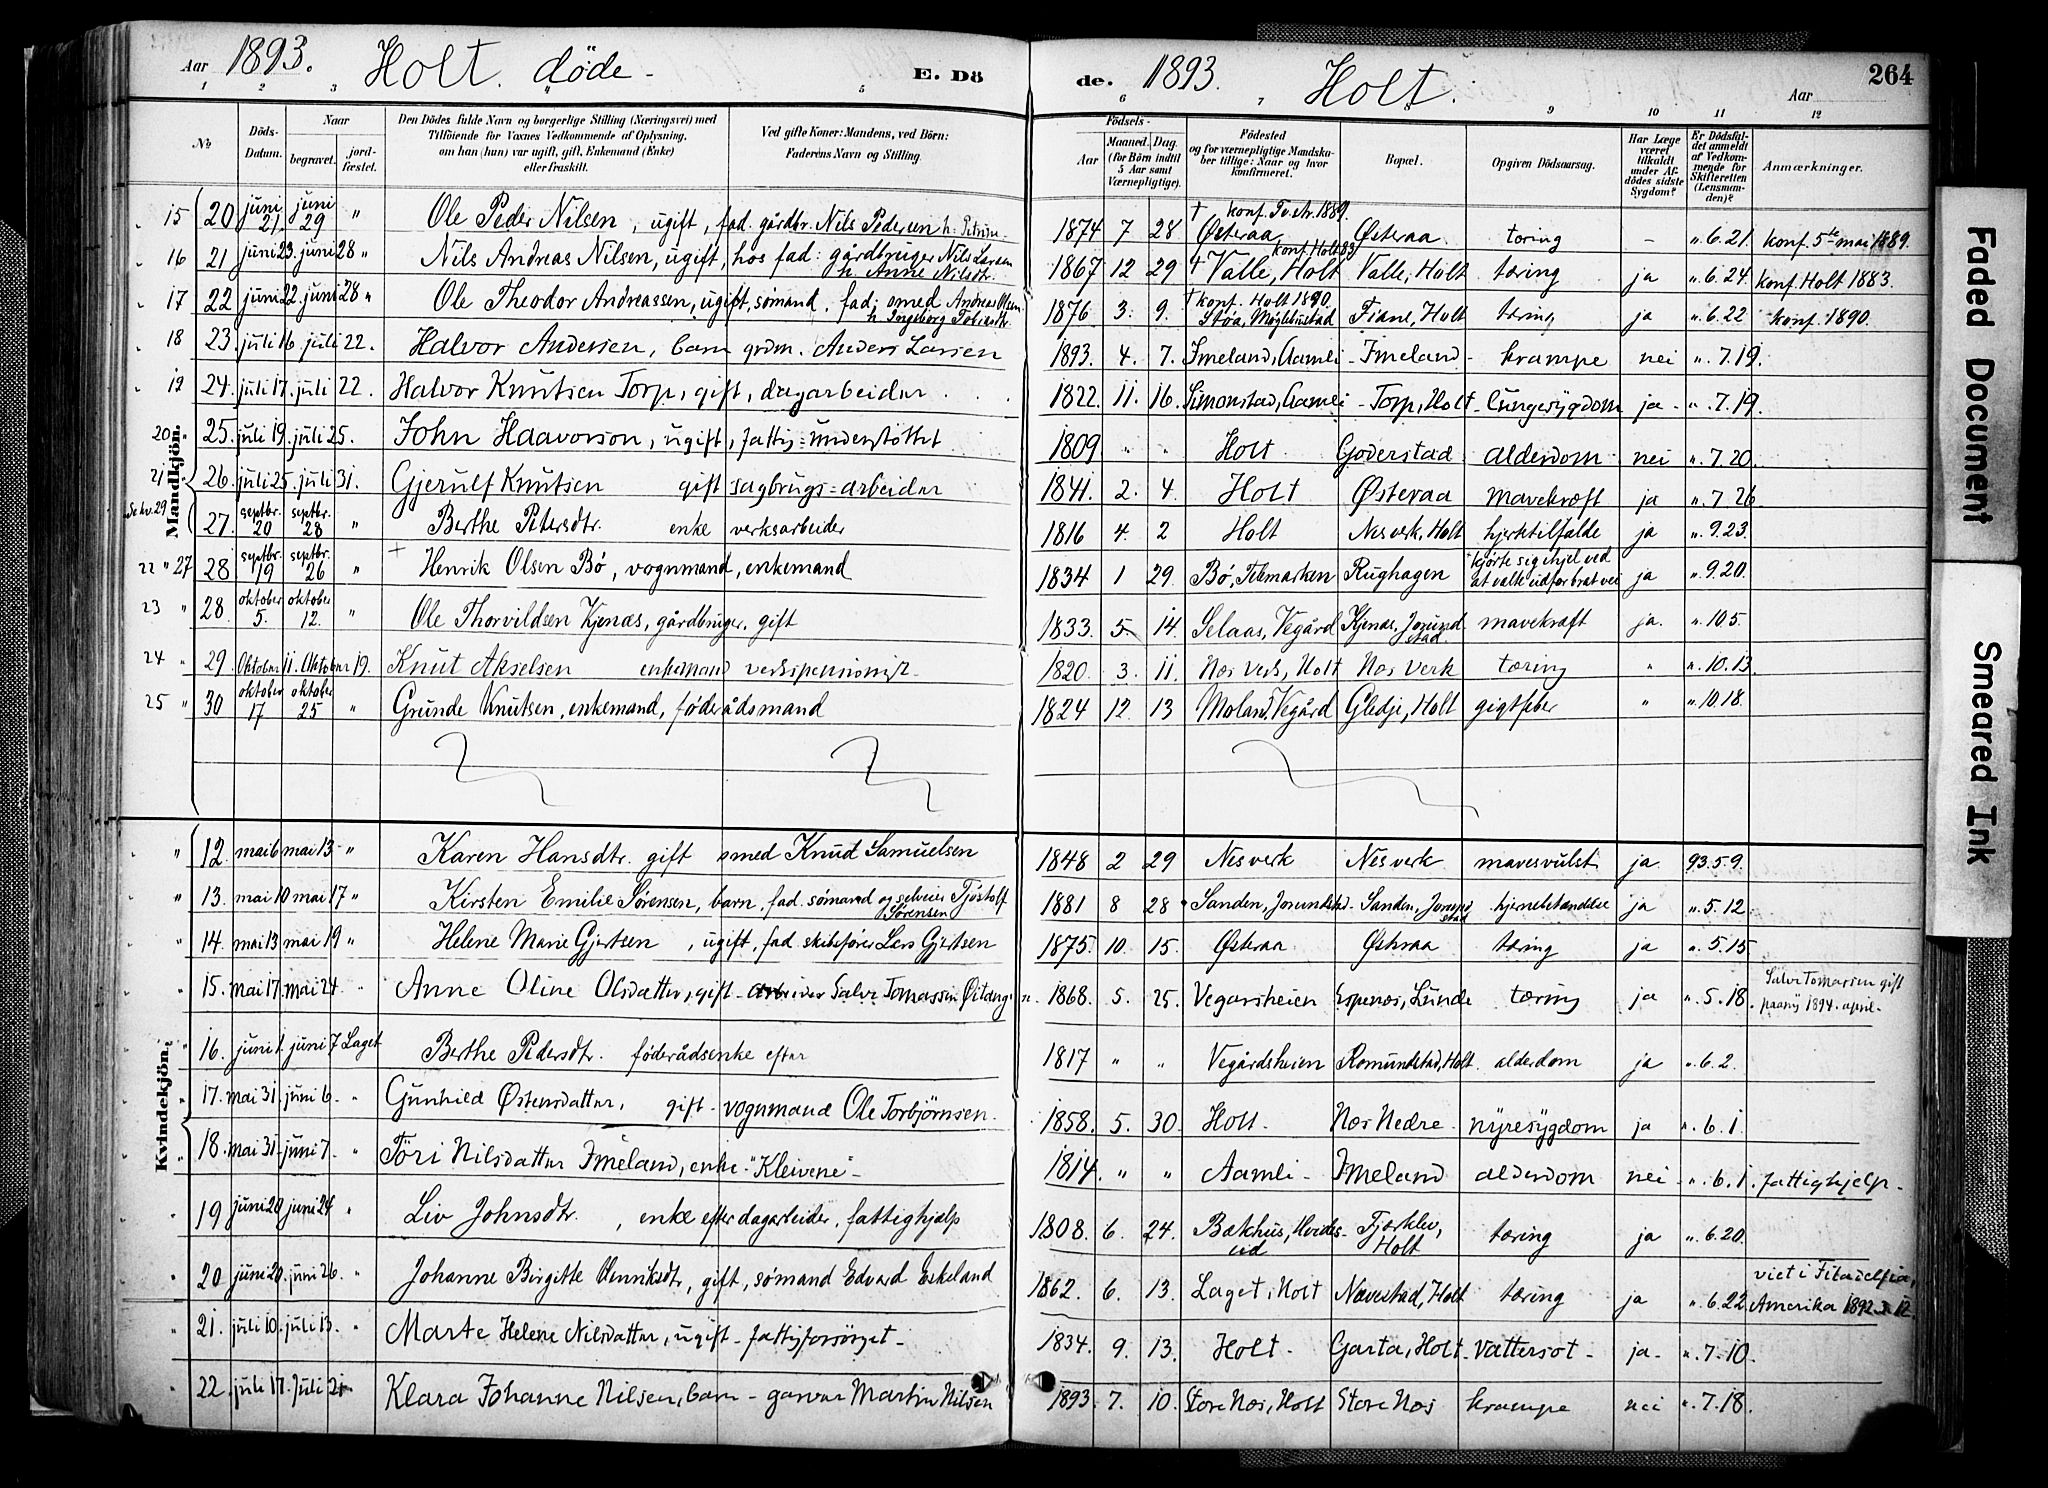 Aar 1893. Holt. døde - E. Dö de. 1893. Holt. Aar 264
1 2 3 4 5 6 7 8 9 10 11 12
No Döds-Datum. Naar begravet. jordfæstet. Den Dödes fulde Navn og borgerlige Stilling (Næringsvei) med Tilföiende for Voxnes Vedkommende af Oplysning, om han (hun) var ugift, gift, Enkemand (Enke) eller fraskilt. Ved gifte Koner: Mandens, ved Börn: Faderens Navn og Stilling. Födsels- Aar Maaned. Dag. (for Börn indtil 5 Aar samt Værnepligtige). Födested og for værnepligtige Mandskaber tillige: Naar og hvor konfirmeret. Bopæl. Opgiven Dödsaarsag. Har Læge været tilkaldt under Afdödes sidste Sygdom? Er Dödsfaldet anmeldt af Vedkommende for Skifteretten (Lensmanden)? Anmærkninger.
Mandkjön.
15 20 juni 21. juni 29 " Ole Peder Nilsen, ugift, fad. gårdbr. Nils Pedersen h. Petrine 1874 7 28 † konf. Tv.str. 1889. Østeraa Østeraa tæring - " 6.21. konf. 5te mai 1889.
16 21 juni 23. juni 28 " Nils Andreas Nilsen, ugift, hos fad: gårdbruger Nils Larsen h. Anne Nilsdtr. 1867 12 29 † konf. Holt 83 Valle, Holt Valle, Holt tæring ja " 6.24. konf. Holt 1883.
17 22 juni 22. juni 28 " Ole Theodor Andreassen, ugift, sømand. fad; smed Andreas Olsen h Ingeborg Tobiasdtr. 1876. 3. 9. † konf. Holt 1890. Støa, Møglebustad Fiane, Holt tæring ja " 6.22 konf. 1890.
18 23. juli 16. juli 22. Halvor Andersen, barn grdm. Anders Larsen 1893. 4. 7. Imeland, Aamli - Imeland - krampe nei " 7.19.
19 24. juli 17. juli 22. Halvor Knutsen Torp, gift, dagarbeider 1822. 11. 16. Simonstad, Aamli - Torp, Holt - lungesygdom ja - " 7.19.
20 " 25. juli 19. juli 25. John Haavorson, ugift, fattig-understøttet 1809 " " Holt Goderstad alderdom nei " 7.20.
21 26. juli 25. juli 31. Gjerulf Knutsen gift sagbrugs-arbeider 1841. 2. 4. Holt Østeraa mavekræft ja " 7.26
27. septbr. 20 septbr. 28 " Berthe Petersdtr. enke verksarbeider 1816 4. 2 Holt Nes verk, Holt hjertetilfælde ja " 9.23.
22 " 27 28 septbr. 19 septbr. 26 " † Henrik Olsen Bø, vognmand, enkemand 1834 1 29. Bø, Telemarken Rughagen kjørte sig ihjel ved at vælte udfor brat vei ja " 9.20.
23 " 28. oktober 5. oktober 12. " Ole Thorvildsen Kjenas, gårdbruger. gift 1833. 5. 14. Selaas, Vegård Kjenas, Jorundstad mavekræft ja. " 10 5.
24 " 29. Oktober 11. Oktober 19. Knut Akselsen enkemand verkspensionist. 1820. 3. 11. Næs verk, Holt Næs verk tæring " " 10.13.
25 " 30 oktober 17 oktober 25 " Grunde Knutsen, enkemand, føderådsmand 1824 12. 13 Moland, Vegård Gledje, Holt gigtfeber " " 10.18.
Kvindekjön.
" 12. mai 6 mai 13 - " Karen Hansdtr. gift smed Knud Samuelsen 1848 2 29 Nesverk Nesverk mavesvulst ja. 93.5.9.
" 13. mai 10 mai 17 " Kirsten Emilie Sørensen, barn, fad. sømand og selveier Tjøstolf Sørensen 1881 8 28 Sanden, Jorundstad Sanden, Jorundstad hjernebetændelse ja " 5.12.
" 14. mai 13 mai 19 " Helene Marie Gjertsen, ugift, fad. skibsfører Lars Gjertsen 1875. 10. 15. Østeraa Østeraa tæring ja " 5.15
" 15. mai 17. mai 24 " Anne Oline Olsdatter, gift - arbeider Salve Tomassen Øitangen. 1868. 5. 25. Vegarsheien Espenæs, Lunde tæring ja " 5.18. Salve Tomassen gift paany 1894. april.
16. juni 1. juni 7 Laget Berthe Pedersdtr. føderådsenke efter 1817 " " Vegårdsheien Romundstad, Holt alderdom ja " 6.2.
17. mai 31 juni 6. " Gunhild Østensdatter, gift - vognmand Ole Torbjørnsen. 1858. 5. 30. Holt. Næs Nedre. nyresygdom ja " 6.1.
" 18. mai 31 juni 7. " Töri Nilsdatter Imeland, enke - "Kleivene" - 1814. " " Aamli - Imeland alderdom nei " 6.1. fattighjelp -
" 19 juni 20 juni 24 " Liv Johnsdtr., enke efter dagarbeider, fattighjælp 1808. 6. 24. Bakhus, Hvideseid Tjørklev, Holt tæring ja " 6.20.
" 20 juni 20. juni 26. " Johanne Birgitte Henriksdtr, gift, sømand Edvard Eskeland 1862. 6. 13. Laget, Holt Nævestad, Holt tæring ja " 6.22 viet i Filadelfia, Amerika 1892
" 21. juli 10. juli 13. " Marte Helene Nilsdatter, ugift - fattigforsørget - 1834. 9. 13. Holt - Garta, Holt - Vattersot - ja - " 7.10.
" 22. juli 17. Juli 21 Klara Johanne Nilsen, barn - garver Martin Nilsen 1893. 7. 10. Store Næs, Holt Store Næs krampe nei " 7.18.
Faded Document
Smeared Ink